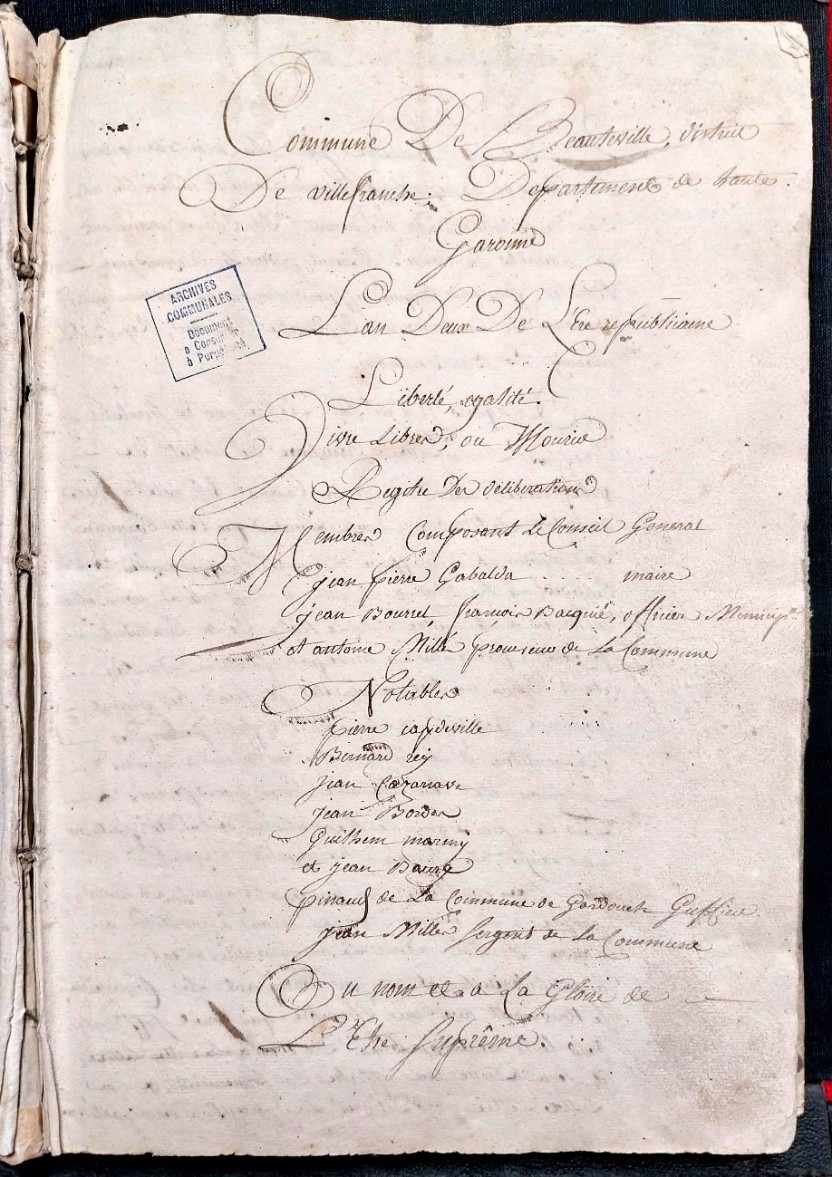 Commune De Beauteville, district
De villefranche. Departement de haute
Garonne
ARCHIVES
COMMUNALES
Document
à Conserver
à Perpétuité
L'an Deux De L'Ere republicaine
Liberté, egalité.
Vivre Libres, ou Mourir
Regitre Des deliberations
Membres Composant Le Conseil General
jean pierre Gabalda .... maire
jean Bourrel, françois Bacquié, officiers Municip.
et antoine Millé procureur de La Commune
Notables
pierre capdeville
Bernard rey
jean Cazanave
jean Bordes
Guilhem marmy
et jean Bauzé
pinaud de La Commune de Gardouch Greffier
jean Milles sergent de La Commune
Au nom et a La Gloire de
L'Etre Suprême.